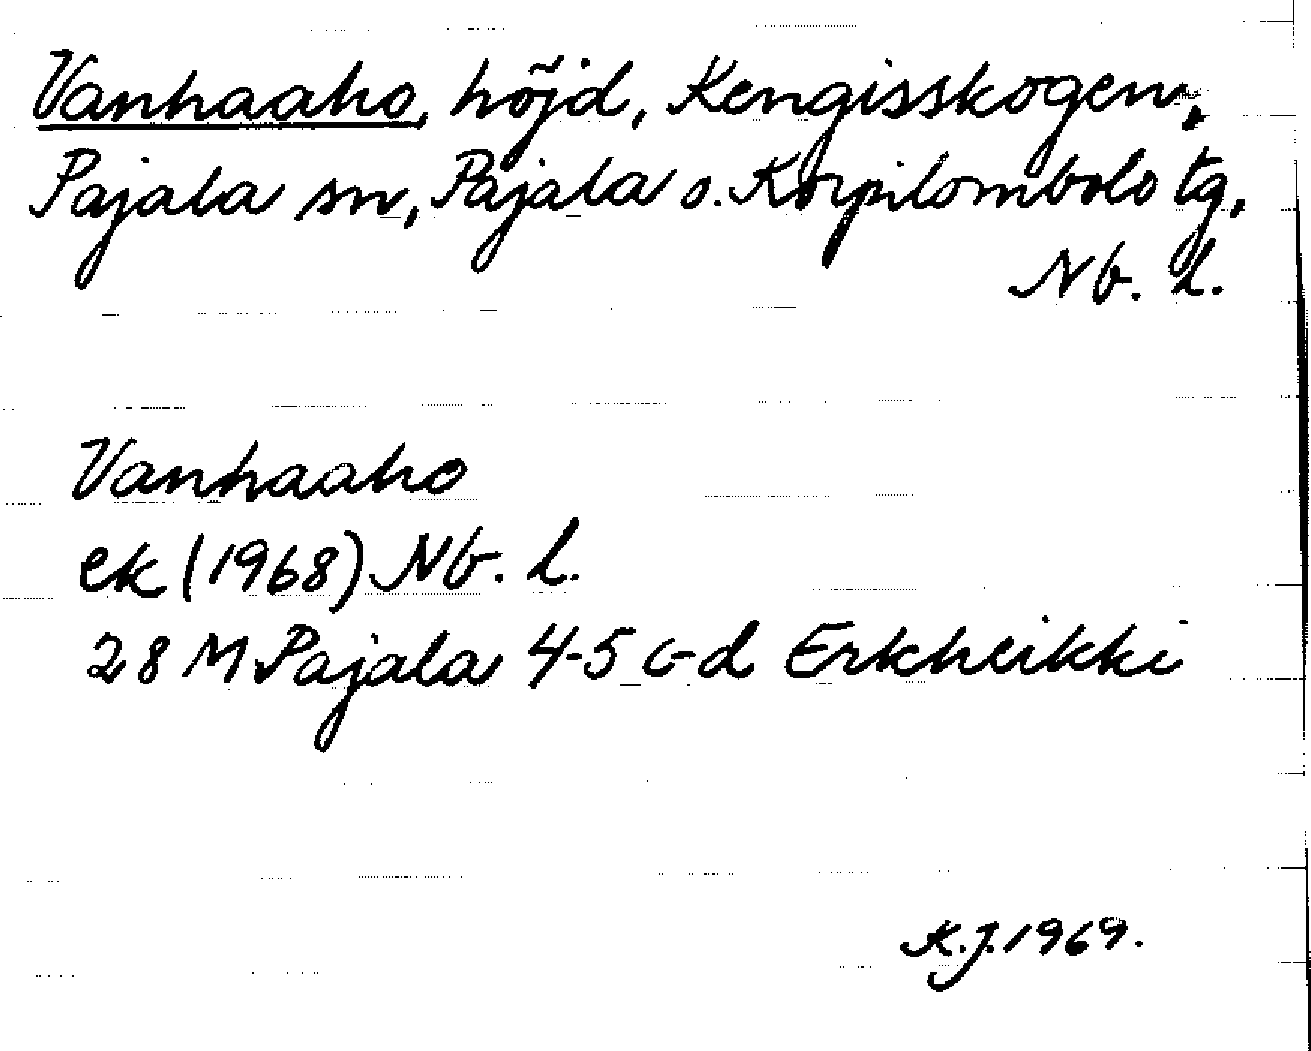 Vanhaaho, höjd, Kengisskogen,
Pajala sn, Pajala o. Korpilombolo tg,
Nb. l.
Vanhaaho
ek (1968) Nb. l.
28 M Pajala 4-5 c-d Erkheikki
K.J. 1969.